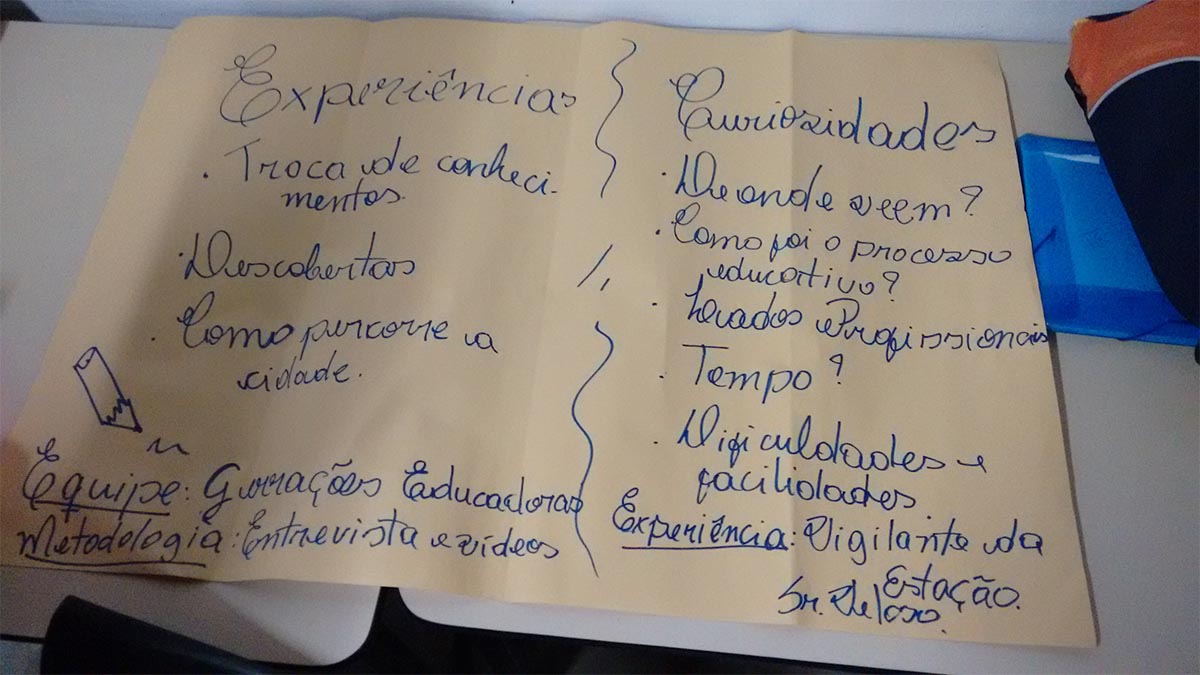 Experiências
. Troca de conheci-
mentos.
. Descobertas
. Como percorre a
cidade.
Equipe: Gerações Educadoras
Metodologia: Entrevista e vídeos
Curiosidades
. De onde veem?
. Como foi o processo
educativo?
. Lecados Profissionais
. Tempo?
. Dificuldades e
facilidades.
Experiência: Vigilante da
Estação.
Sr. Veloso.